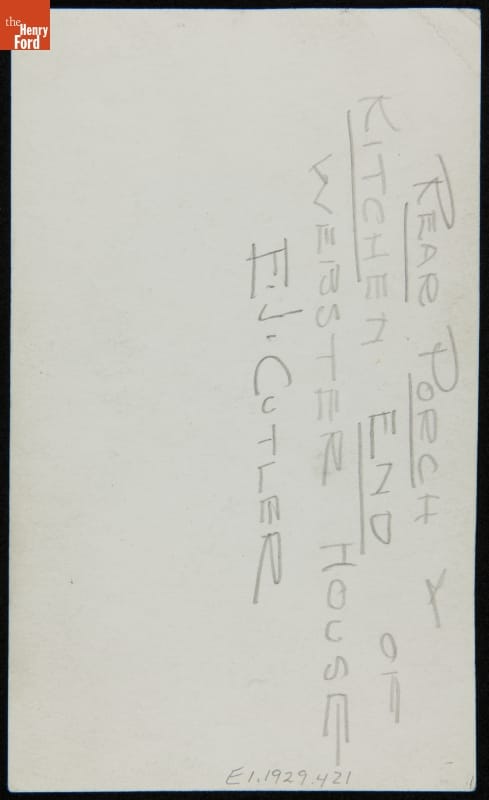 the
Henry
Ford
REAR PORCH &
KITCHEN END OF
WEBSTER HOUSE
E.J. CUTLER
E1.1929.421